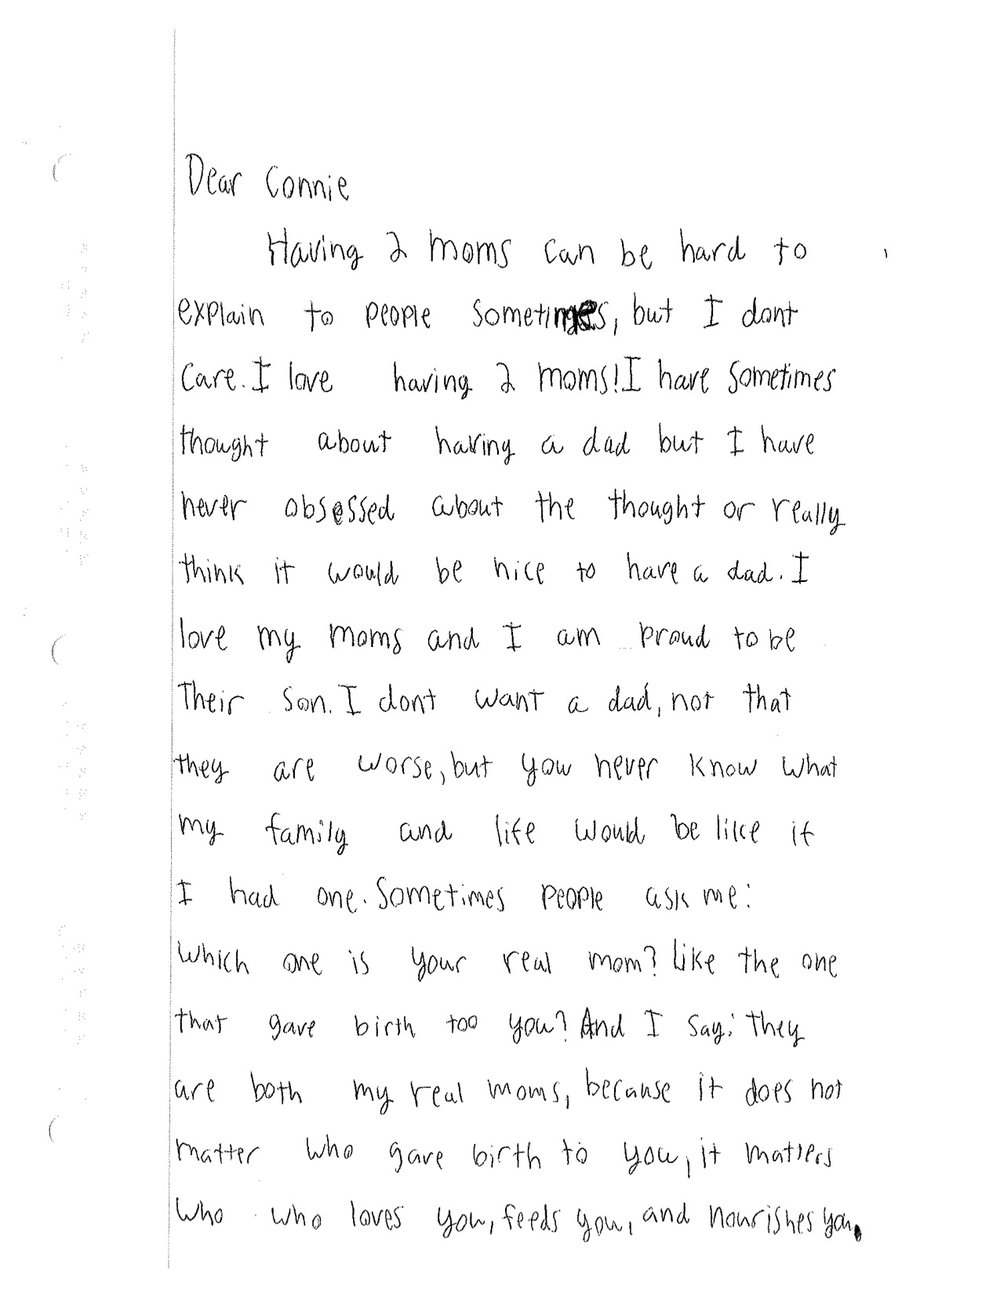 Dear Connie
Having 2 moms can be hard to
explain to people sometimes, but I dont
care. I love having 2 moms! I have sometimes
thought about having a dad but I have
never obsessed about the thought or really
think it would be nice to have a dad. I
love my moms and I am proud to be
Their son. I dont want a dad, not that
they are worse, but you never know what
my family and life would be like if
I had one. Sometimes people ask me:
which one is your real mom? Like the one
that gave birth too you? And I say: they
are both my real moms, because it does not
matter who gave birth to you, it matters
who who loves you, feeds you, and nourishes you.